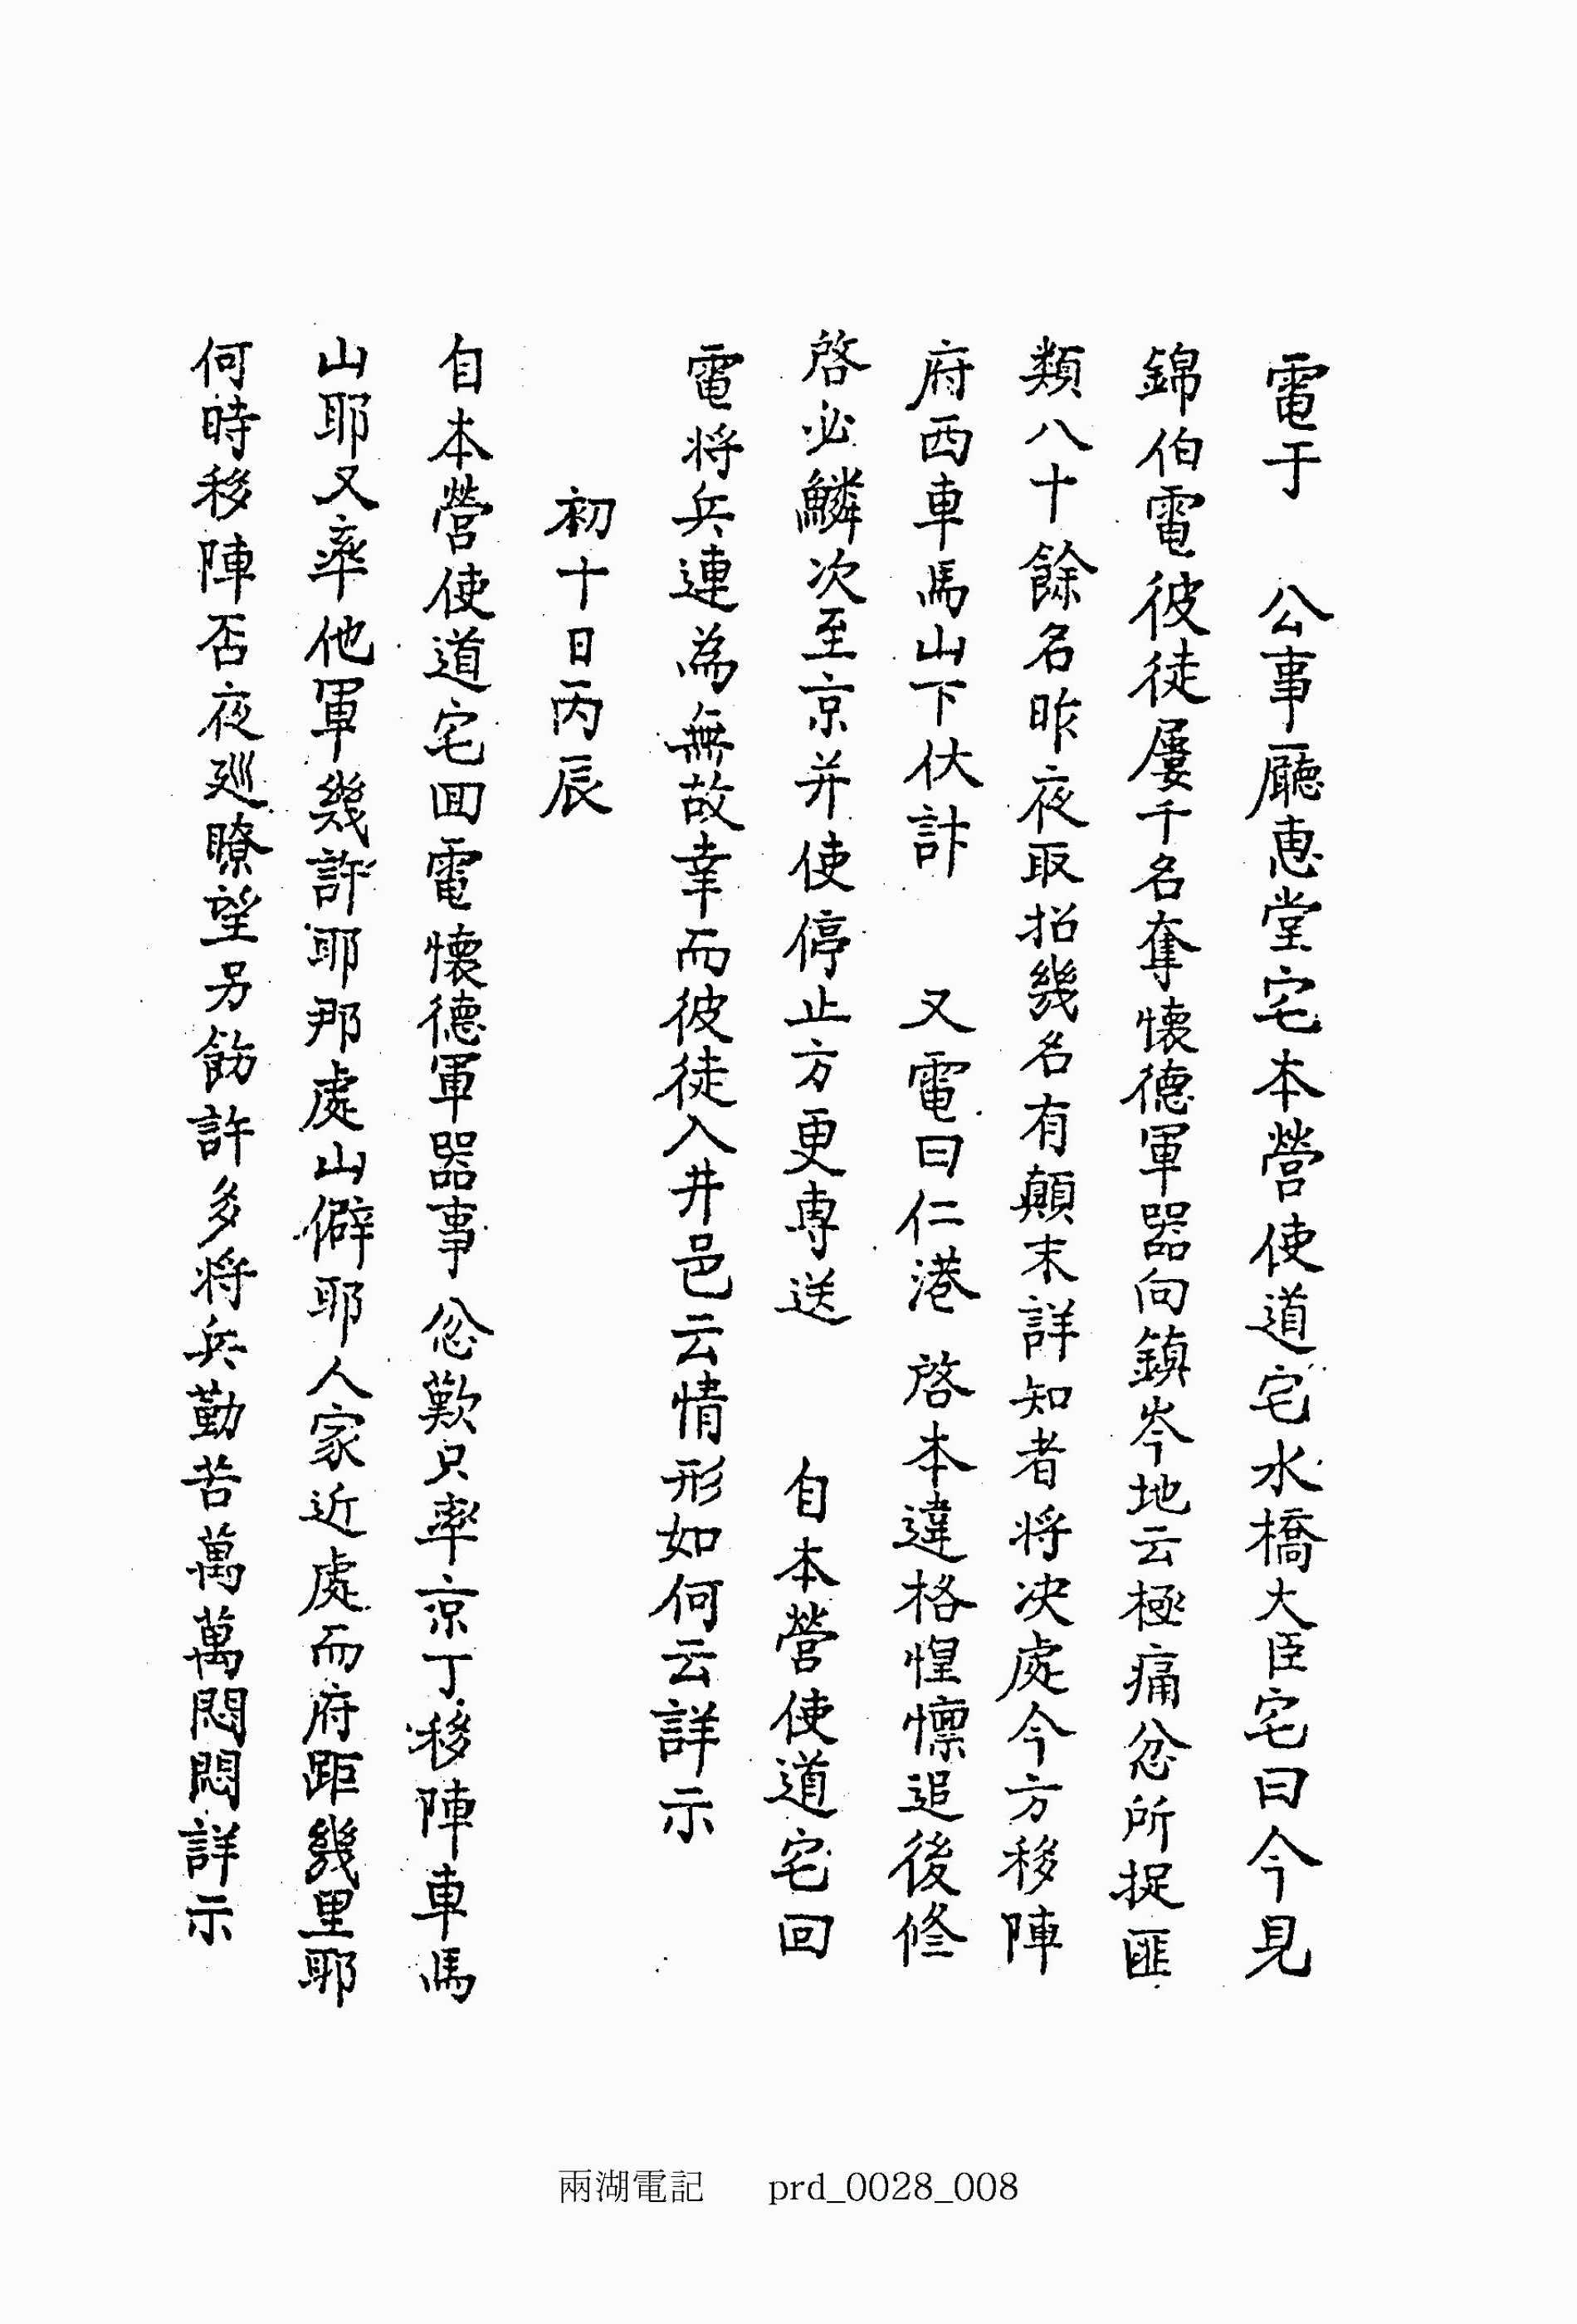 電于 公事廳惠堂宅本營使道宅水橋大臣宅曰今見
錦伯電彼徒屢千名奪懷德軍器向鎭岑地云極痛忿所捉匪
類八十餘名昨夜取招幾名有顚末詳知者將决處今方移陣
府西車馬山下伏計 又電曰仁港 啓本違格惶懍追後修
啓必鱗次至京并使停止方更専送 自本營使道宅回
電将兵連為無故幸而彼徒入井邑云情形如何云詳示
初十日丙辰
自本營使道宅回電懷德軍器事忿歎只率京丁移陣車馬
山耶又率他軍幾許耶那處山僻耶人家近處而府距幾里耶
何時移陣否夜廵瞭望另飭許多将兵勤苦萬萬悶悶詳示
兩湖電記 prd_0028_008